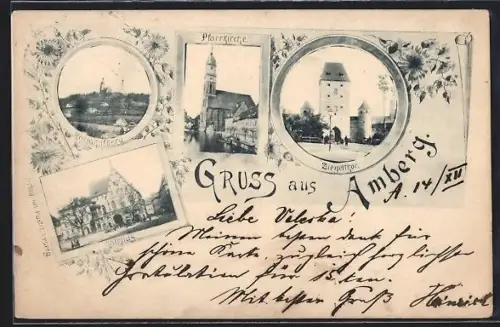 Pfarrkirche
Ziegelthor
Gruss aus Amberg.
A. 14/XII
Liebe Valeska!
Meinen besten Dank für
schöne Karte, zugleich herzlichsten
Gratulation für 15ten.
Mit besten Gruß Heinrich